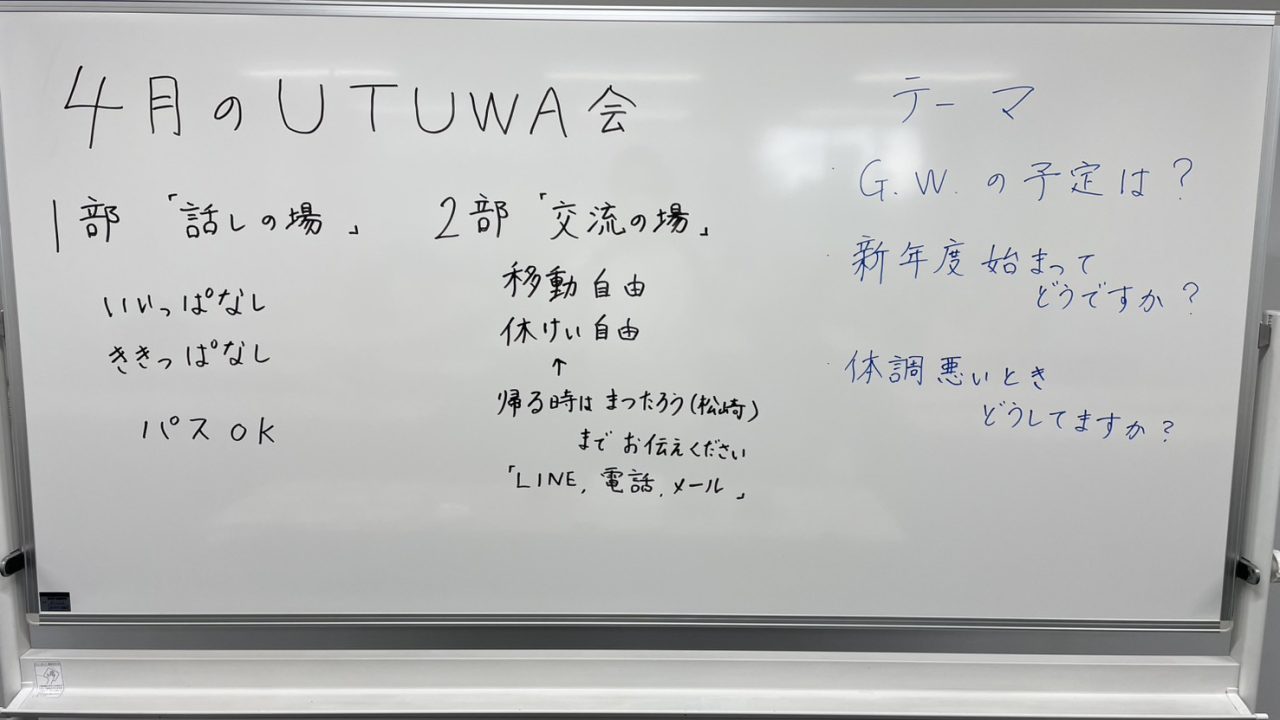 4月のUTUWA会
1部 「話しの場」
いいっぱなし
ききっぱなし
パスOK
2部 「交流の場」
移動自由
休けい自由
↑
帰る時は まつたろう(松崎)
まで お伝えください
「LINE, 電話, メール」
テーマ
・G.W.の予定は?
・新年度始まって
どうですか?
・体調悪いとき
どうしてますか?